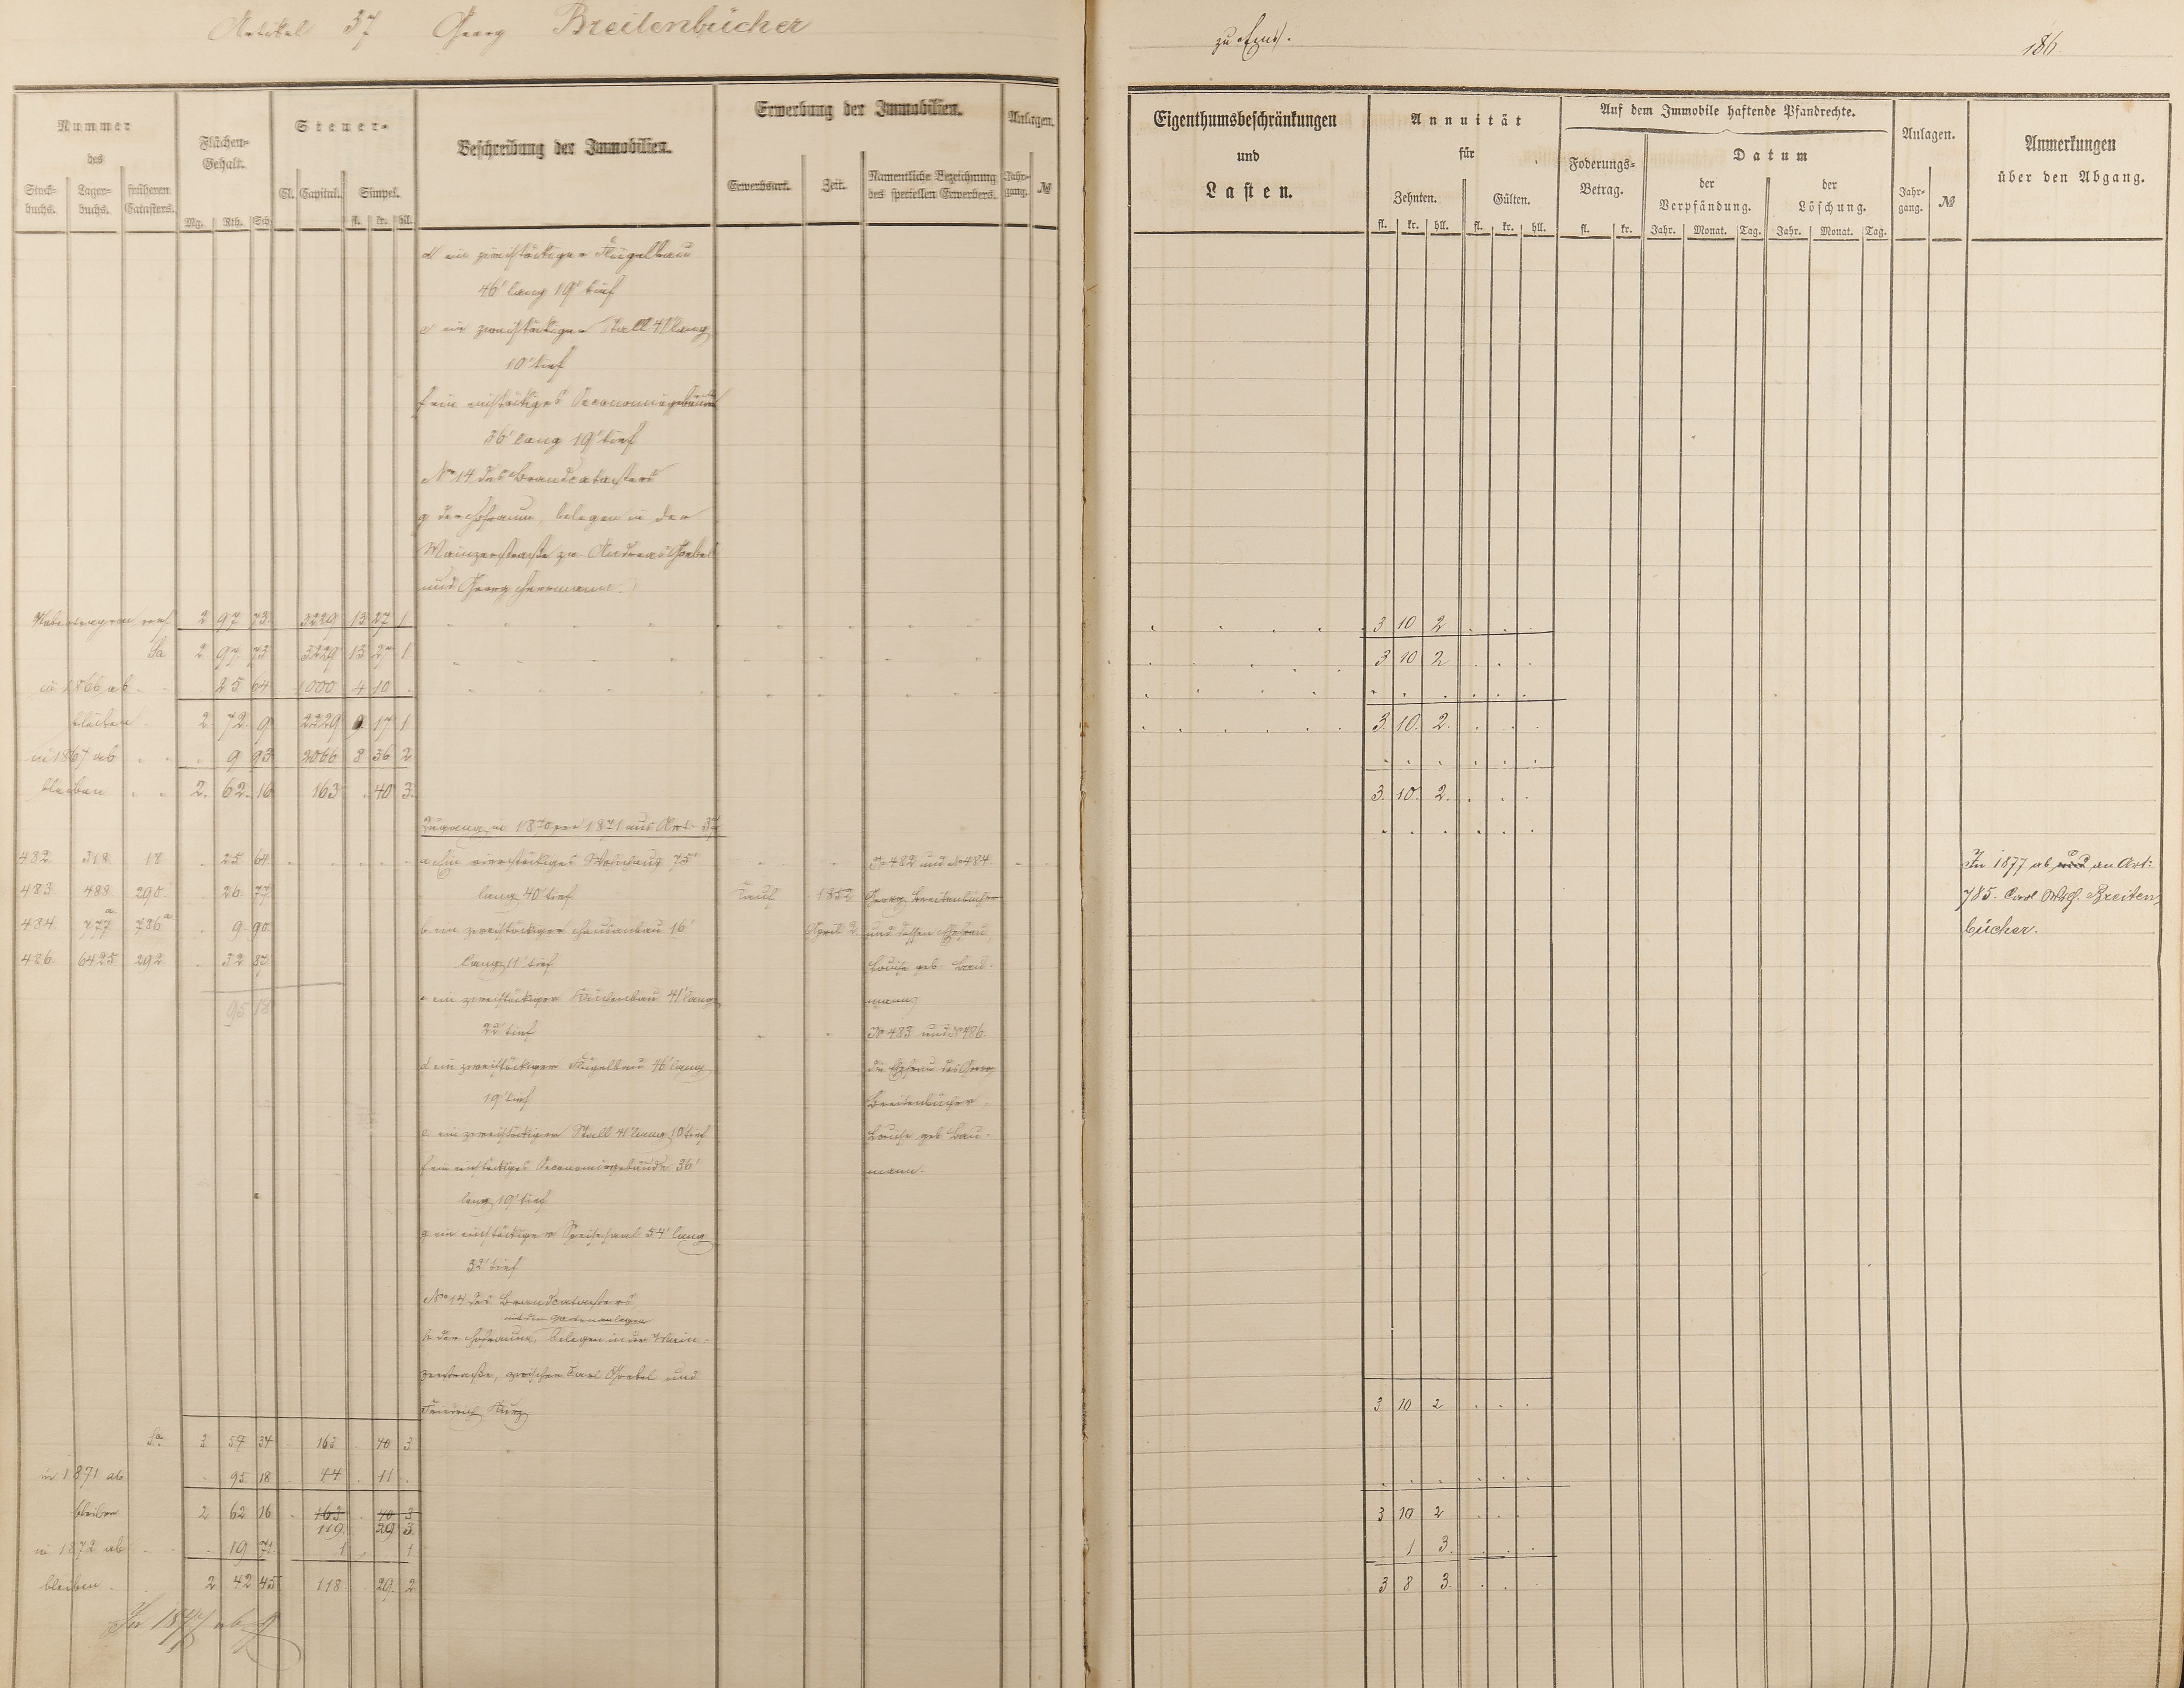 Artikel 37 Georg Breitenbücher
zu Ems.
186.
Nummer
des
Stock-
buchs.
Lager-
buchs.
früheren
Catasters.
Flächen-
Gehalt.
Mg. Rth. Sch.
Steuer-
Cl. Capital. Simpel.
fl. kr. hll.
Beschreibung der Immobilien.
Erwerbung der Immobilien.
Erwerbsart. Zeit.
Namentliche Bezeichnung
des speciellen Erwerbers.
Anlagen.
Jahr-
gang. №
Eigenthumsbeschränkungen
und
Lasten.
Annuität
für
Zehnten. Gülten.
fl. kr. hll. fl. kr. hll.
Auf dem Immobile haftende Pfandrechte.
Foderungs-
Betrag.
fl. kr.
Datum
der
Verpfändung.
der
Löschung.
Jahr. Monat. Tag. Jahr. Monat. Tag.
Anlagen.
Jahr-
gang. №
Anmerkungen
über den Abgang.
d ein zweistöckiger Flügelbau
46' lang 19' tief
e ein zweistöckiger Stall 41' lang
10' tief
f ein einstöckiges Oeconomiegebäude
36' lang 19' tief
No 14 des Brandcatasters
g der Hofraum, belegen in der
Mainzerstraße zw. Andreas Goebel
und Georg Herrmann.
2 97 73 3229 13 27 1 3 10 2
Sa 2 97 73 3229 13 27 1 3 10 2
in 1866 ab 25 64 1000 4 10
bleiben 2 72 9 2229 9 17 1 3. 10. 2.
in 1867 ab 9 93 2066 8 36 2
bleiben 2. 62. 16 163 40 3. 3. 10. 2.
Zugang in 1870 per 1871 aus Art. 37
482 318 18 25 64 a Ein vierstöckiges Wohnhaus 75' No 482 und No 484
483. 488. 290. 26. 77 lang 40' tief Kauf 1852 Georg Breitenbücher
484. 777a 786a 9. 90. b ein zweistöckiger Hausanbau 16' April 2. und dessen Ehefrau
486. 6425 292. 32 87 lang 11' tief Louise geb. Bau-
95 18 c ein zweistöckiger Küchenbau 41' lang mann;
22' tief No 483 und No 486.
d ein zweistöckiger Flügelbau 46' lang die Ehefrau des Georg
19' tief Breitenbücher,
e ein zweistöckiger Stall 41' lang 10' tief Louise geb. Bau-
f ein einstöckiges Oeconomiegebäude 36' mann.
lang 19' tief
g ein einstöckiger Speisesaal 54' lang
32' tief
No 14 des Brandcatasters
mit den Gartenanlagen
h der Hofraum, belegen in der Main-
zerstraße, zwischen Carl Goebel und
Friedrich Kurz
In 1877 ab und an Art:
785. Carl Breiten
bücher.
3 10 2
Sa 3 57 34 163 40 3
in 1871 ab 95 18 44 11
bleiben 2 62 16 163 40 3 3 10 2
119 29 3
in 1872 ab 19 71 1 1 1 3.
bleiben. 2 42 45 118 29 2 3 8 3.
In 1877 ab